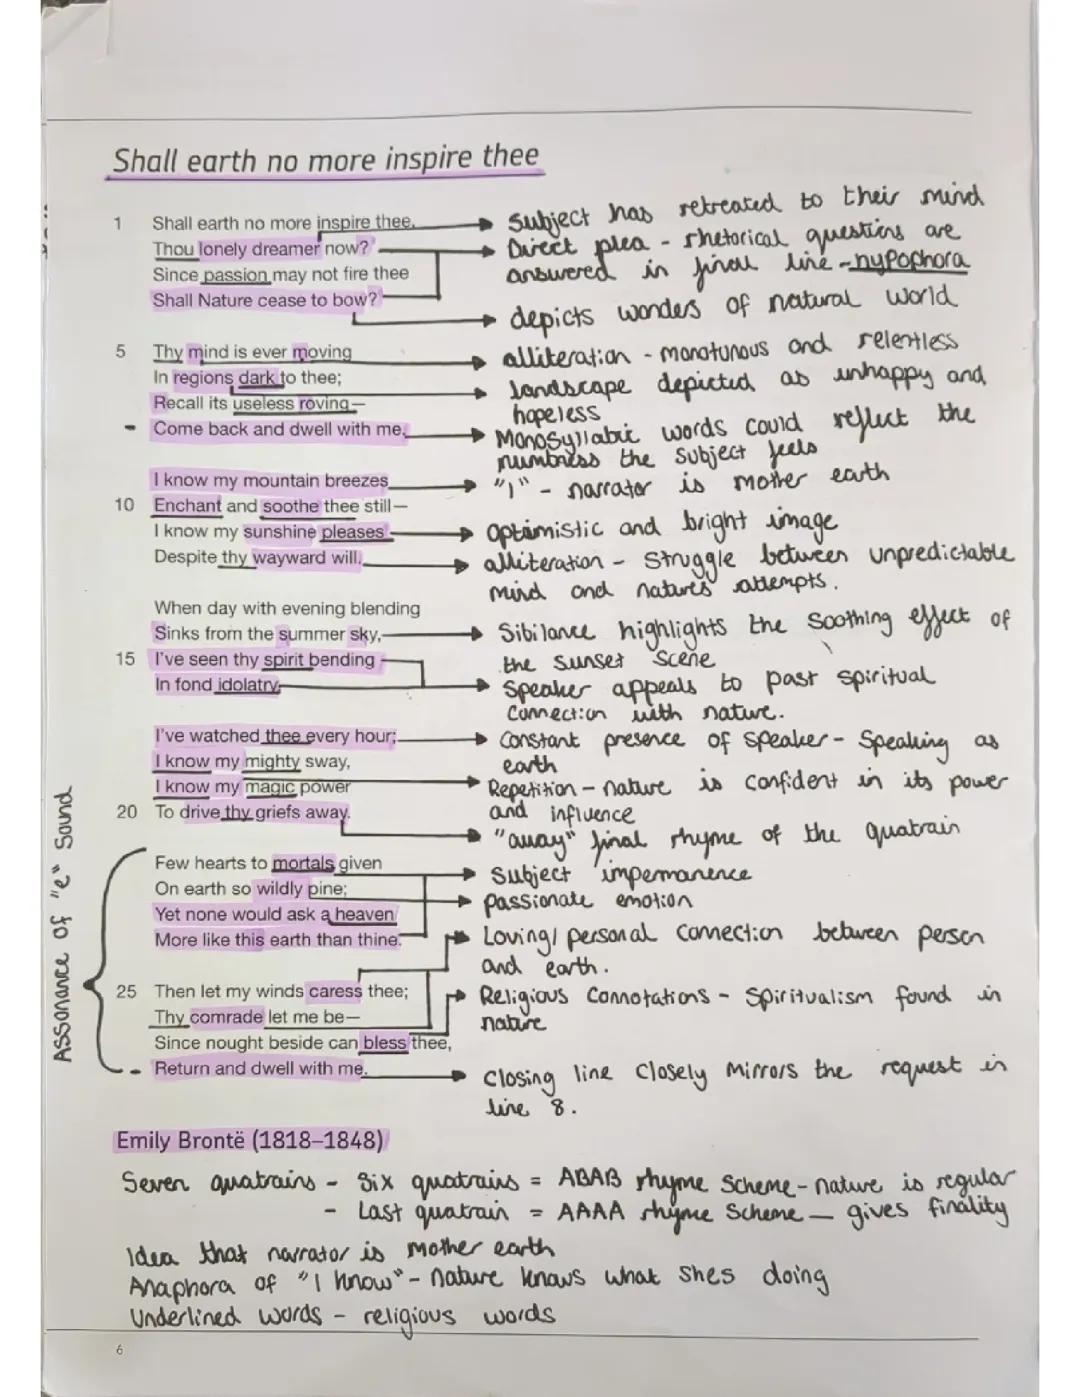 Shall earth no more inspire thee
1 Shall earth no more inspire thee,
Thou lonely dreamer now?
Since passion may not fire thee
Shall Nature cease to bow?
5 Thy mind is ever moving
In regions dark to thee;
Recall its useless roving—
Come back and dwell with me.
I know my mountain breezes
10 Enchant and soothe thee still—
I know my sunshine pleases
Despite thy wayward will.
When day with evening blending
Sinks from the summer sky,
15 I've seen thy spirit bending
In fond idolatry.
I've watched thee every hour;
I know my mighty sway,
I know my magic power
20 To drive thy griefs away.
Few hearts to mortals given
On earth so wildly pine;
Yet none would ask a heaven
More like this earth than thine.
25 Then let my winds caress thee;
Thy comrade let me be—
Since nought beside can bless thee,
Return and dwell with me.
subject has retreated to their mind
Direct plea - rhetorical questions are
answered in final line - hypophora
depicts wonders of natural world
alliteration - monotunous and relentless
landscape depicted as unhappy and
hopeless
Monosyllabic words could reflect the
numbness the subject feels
"I" - narrator is mother earth
Optimistic and bright image
alliteration - struggle between unpredictable
mind and natures attempts.
Sibilance highlights the soothing effect of
the sunset scene
Speaker appeals to past spiritual
connection with nature.
Constant presence of speaker - Speaking as
earth
Repetition - nature is confident in its power
and influence
"away" final rhyme of the quatrain
Subject impermanence
passionate emotion
Loving/personal connection between person
and earth.
Religious Connotations - Spiritualism found in
nature
Closing line closely mirrors the request in
line 8.
Assonance of "e" sound
Emily Brontë (1818–1848)
Seven quatrains - Six quatrains = ABAB rhyme scheme - nature is regular
- Last quatrain = AAAA rhyme scheme — gives finality
Idea that narrator is mother earth
Anaphora of "I know" - nature knows what shes doing
Underlined words - religious words
6